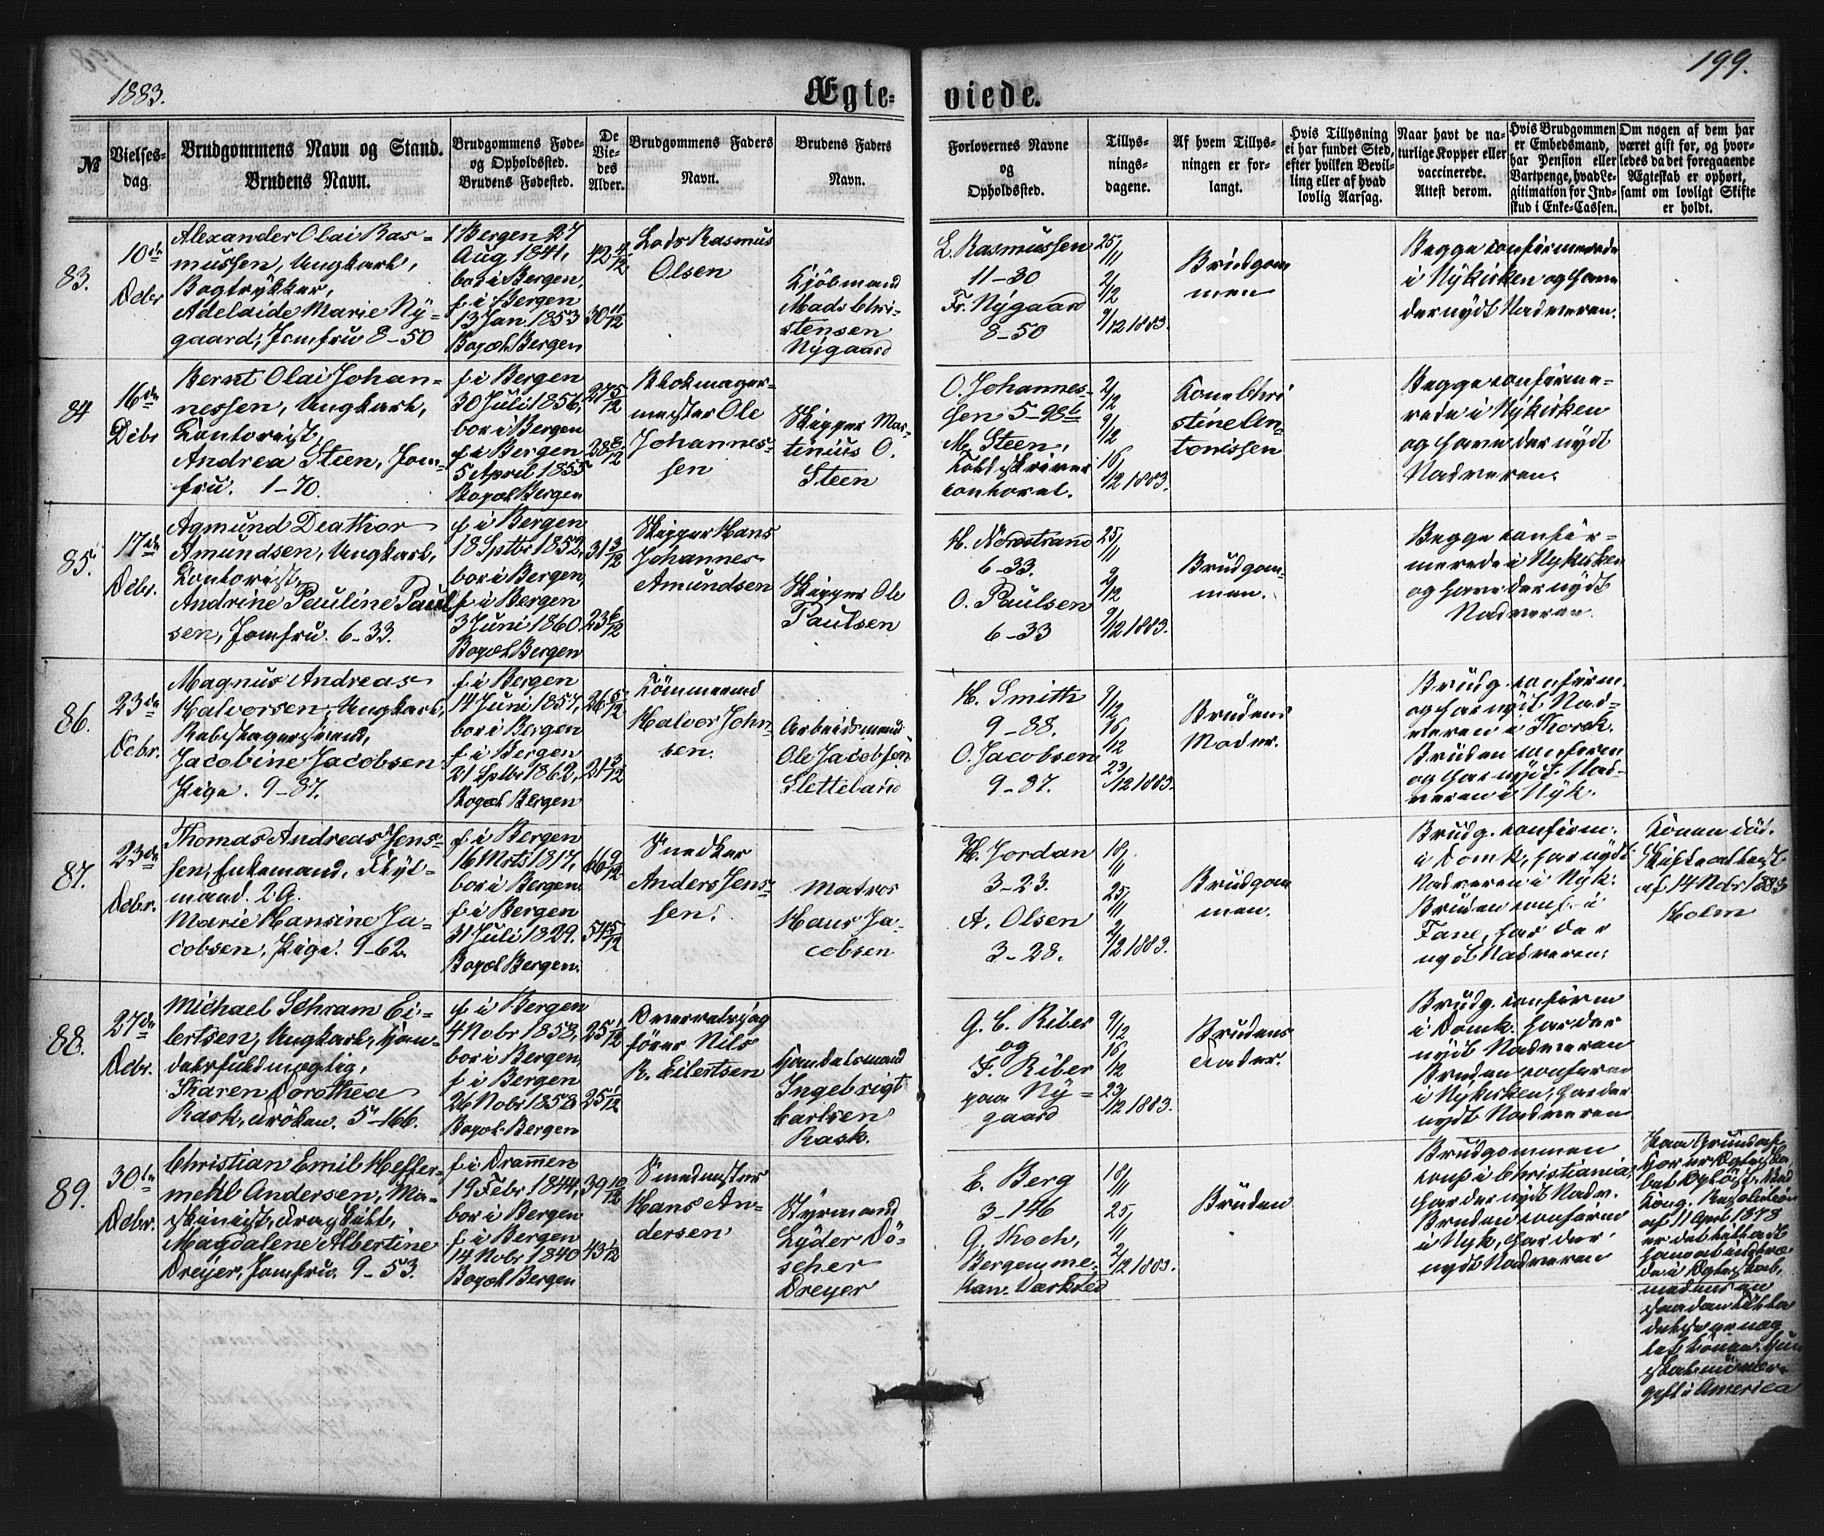 1883.
Ægte-
viede.
199.
№
Vielses-
dag.
Brudgommens Navn og Stand.
Brudens Navn.
Brudgommens Føde-
og Opholdssted.
Brudens Fødested.
De
Vie-
des
Alder.
Brudgommens Faders
Navn.
Brudens Faders
Navn.
Forlovernes Navne
og
Opholdssted.
Tillys-
nings-
dagene.
Af hvem Tillys-
ningen er for-
langt.
Hvis Tillysning
ei har fundet Sted,
efter hvilken Bevil-
ling eller af hvad
lovlig Aarsag.
Naar havt de na-
turlige Kopper eller
vaccinerede.
Attest derom.
Hvis Brudgommen
er Embedsmand,
har Pension eller
Vartpenge, hvad Le-
gitimation for Ind-
skud i Enke-Cassen.
Om nogen af dem har
været gift før, og hvor-
ledes da det foregaaende
Ægteskab er ophørt,
samt om lovligt Skifte
er holdt.
83.
10de
Debr
Alexander Olai Ras-
mussen, Ungkarl,
Bogtrykker,
Adelaide Marie Ny-
gaard, Jomfru 8-50
i Bergen 27
Aug 1841,
bor i Bergen,
f i Bergen
13 Jan 1853
Bopæl Bergen
42 4/12
30 11/12
Lods Rasmus
Olsen
Kjöbmand
Mads Chri-
stensen
Nygaard
L. Rasmussen
11-30
Fr. Nygaard
8-50
25/11
2/12
9/12 1883.
Brudgom
men
Begge confirmerede
i Nykirken og have
der nydt Nadveren.
84
16de
Debr
Bernt Olai Johan-
nessen, Ungkarl,
Contorist,
Andrea Steen, Jom-
fru. 1-70.
f i Bergen
30 Juli 1856,
bor i Bergen
f i Bergen
5 April 1855
Bopæl Bergen
27 5/12
28 8/12
Blokmager-
mester Ole
Johannes-
sen
Skipper Mar-
tinius O.
Steen
O. Johannes-
sen 5-98b
M. Steen,
Toldskriver
contoret.
2/12
9/12
16/12 1883.
Kone Chri
stine An-
tonissen
Begge confirme-
rede i Nykirken
og have der nydt
Nadveren.
85.
17de
Debr.
Agmund Deathor
Amundsen, Ungkarl,
Contorist,
Andrine Pauline Paul
sen, Jomfru. 6-33.
f i Bergen
18 Sptbr 1852,
bor i Bergen,
f i Bergen
3 Juni 1860
Bopæl Bergen
31 3/12
23 6/12
Skipper Hans
Johannes
Amundsen
Skipper Ole
Paulsen
H. Nordstrand
6-33.
O. Paulsen
6-33
25/11
2/12
9/12 1883.
Brudgom-
men.
Begge confir-
merede i Nykirken
og have der nydt
Nadveren.
86.
23de
Debr.
Magnus Andreas
Halvorsen, Ungkarl,
Rebslagersvend,
Jacobine Jacobsen
Pige. 9-87.
f i Bergen
14 Juni 1857,
bor i Bergen
f i Bergen
21 Sptbr 1862,
Bopæl Bergen
26 6/12
21 3/12
Tömmermd
Halvor John-
sen.
Arbeidsmand
Ole Jacobsen
Sletteland
H. Smith
9-88.
O. Jacobsen
9-87.
9/12
16/12
23/12 1883.
Brudens
Moder.
Brudg. confirm.
og har nydt Nad-
veren i Korsk.
Bruden confirm
og har nydt Nad-
veren i Nyk.
87.
23de
Debr.
Thomas Andreas Jens-
sen, Enkemand, Flyt-
mand. 29.
Marie Hansine Ja-
cobsen, Pige. 9-62.
f i Bergen
16 Mrts 1817,
bor i Bergen.
f i Bergen
31 Juli 1829.
Bopæl Bergen.
66 9/12
54 5/12
Snedker
Anders Jens-
sen.
Matros
Hans Ja-
cobsen
H. Jordan
3-23.
A. Olsen
3-28.
18/11
25/11
2/12 1883.
Brudgom
men.
Brudg. confirm.
i Domk, har nydt
Nadveren i Nyk.
Bruden conf. i
Fane, har der
nydt Nadveren.
Konen död.
Skifteattest
af 14 Nobr 1883
Holm
88.
27de
Debr.
Michael Schram Ei-
lertsen, Ungkarl, Han-
delsfuldmægtig,
Karen Dorothea
Rask, Fröken. 5-166.
f i Bergen
4 Nobr 1858,
bor i Bergen,
f i Bergen
26 Nobr 1858
Bopæl Bergen
25 1/12
25 1/12
Overretssag
förer Nils
R. Eilertsen
Handelsmand
Ingebrigt
Carlsen
Rask.
G. C. Riber
og
F. Riber
paa Ny-
gaard
9/12
16/12
23/12 1883.
Brudens
Fader.
Brudg. confirm
i Domk. har der
nydt Nadveren
Bruden confirm
i Nykirken, har der
nydt Nadveren
89.
30te
Debr.
Christian Emil Heffer-
mehl Andersen, Ma-
skinist, fraskilt,
Magdalene Albertine
Dreyer, Jomfru. 9-53.
f i Drammen
19 Febr 1844,
bor i Bergen
f i Bergen
14 Nobr 1840
Bopæl Bergen
39 10/12
43 1/12
Smedmester
Hans An-
dersen
Styrmand
Lyder Dö-
scher
Dreyer
E. Berg
3-146
G. Koch,
Bergens me-
kan. Værksted
18/11
25/11
2/12 1883.
Bruden
Brudgommen
conf i Christiania,
har der nydt Nadv.
Bruden confirm
i Nyk, har der
nydt Nadveren
Paa Grund af
Hor er Ægteska-
bet oplöst. Ved
Kong. Resolution
af 11 April 1878
er det tilladt
ham at indtræ-
de i Ægteskab,
medens en
saadan Tilla
delse er næg
tet Konen. Hun
skal nu være
gift i America